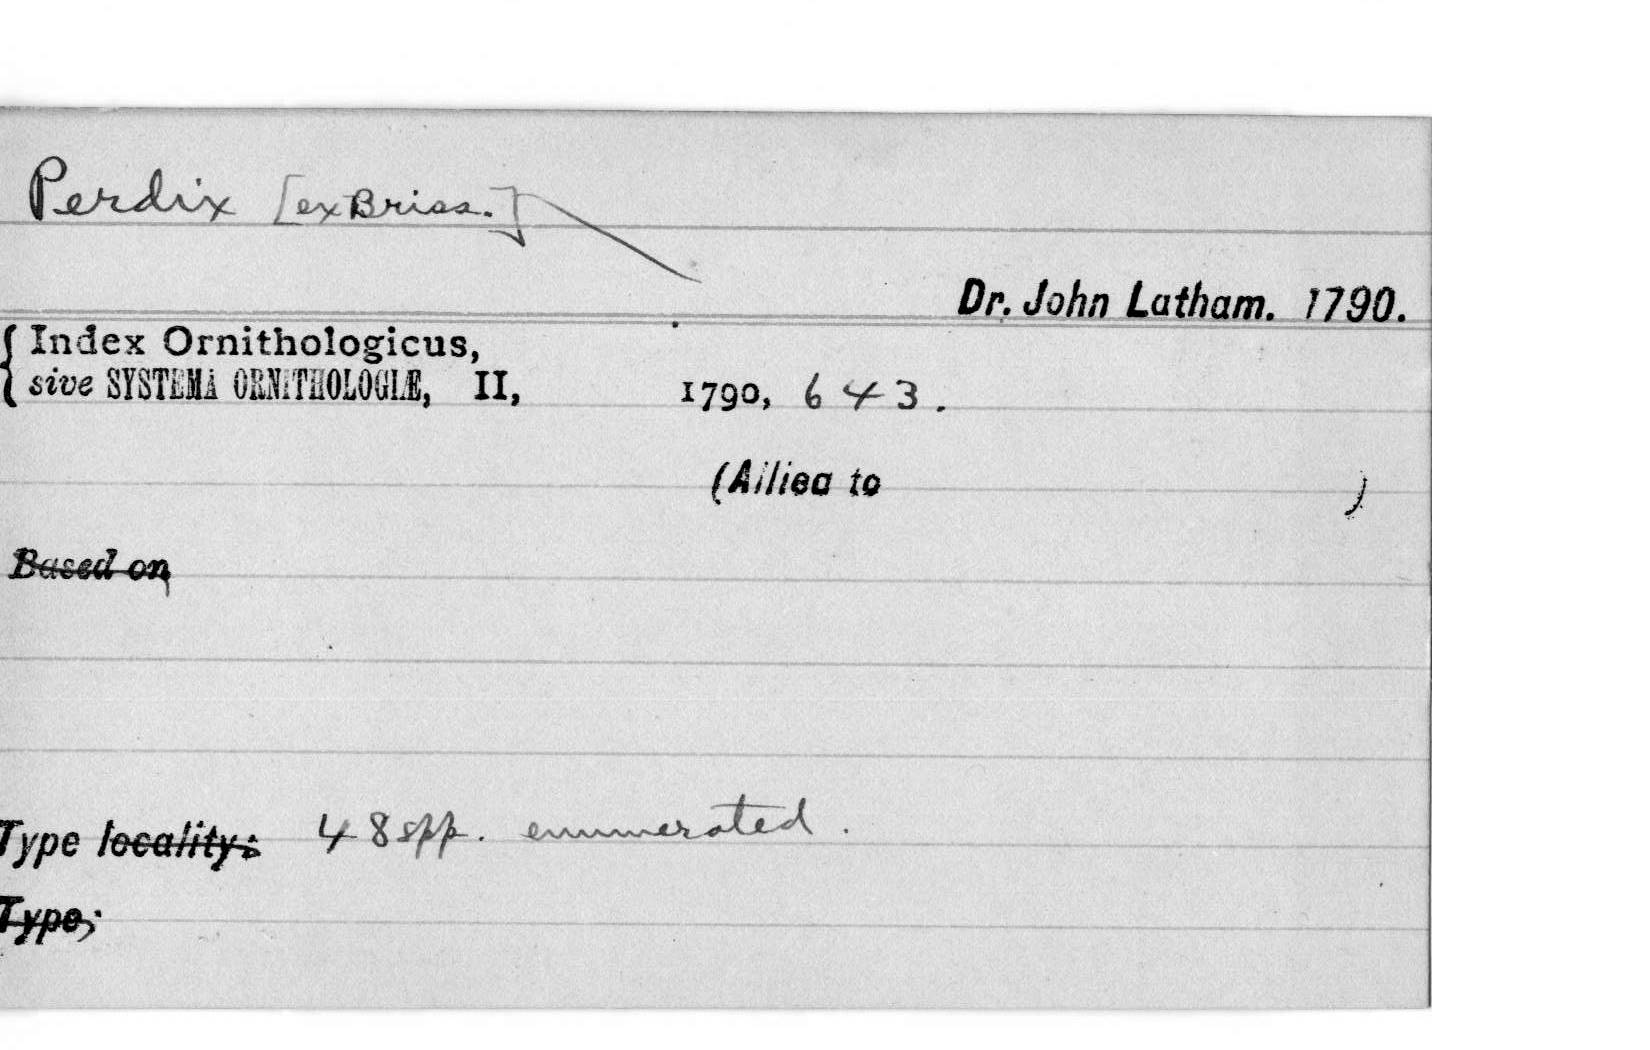 Perdix [ex Briss.]
Dr. John Latham. 1790.
Index Ornithologicus,
sive SYSTEMA ORNITHOLOGIÆ, II, 1790, 643.
(Allied to )
Based on
Type locality: 48 spp. enumerated.
Type;